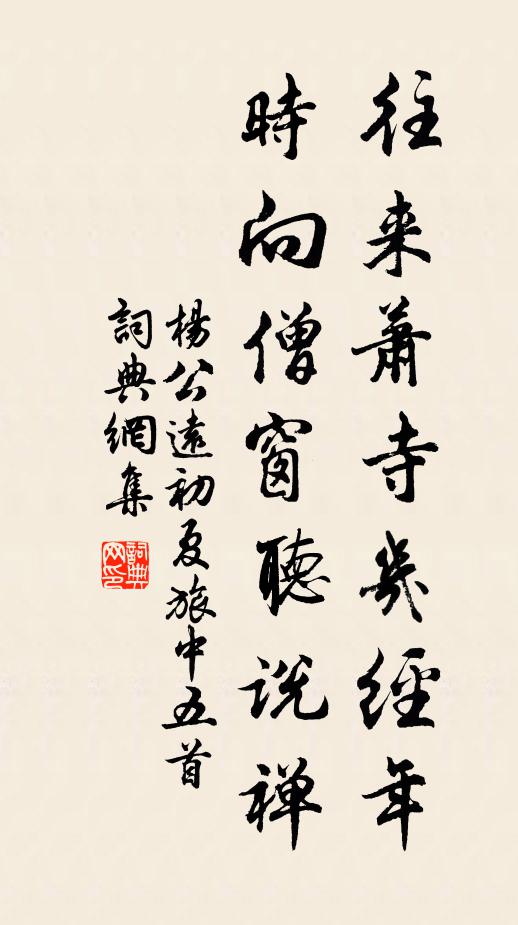 往来蕭寺幾經年
時向僧窗聽説禅
楊公遠初夏旅中五首
詞典網集
詞典网印